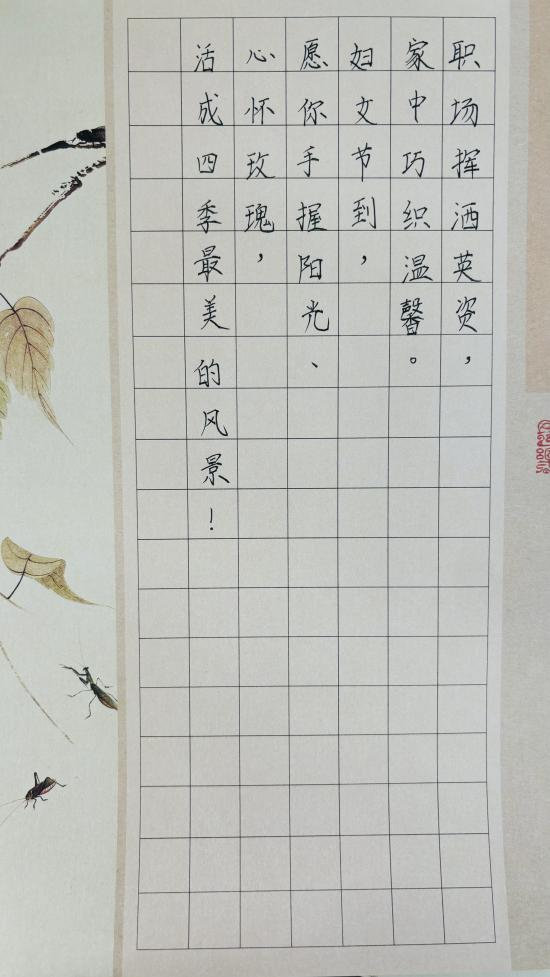 职场挥洒英资，
家中巧织温馨。
妇女节到，
愿你手握阳光、
心怀玫瑰，
活成四季最美的风景！